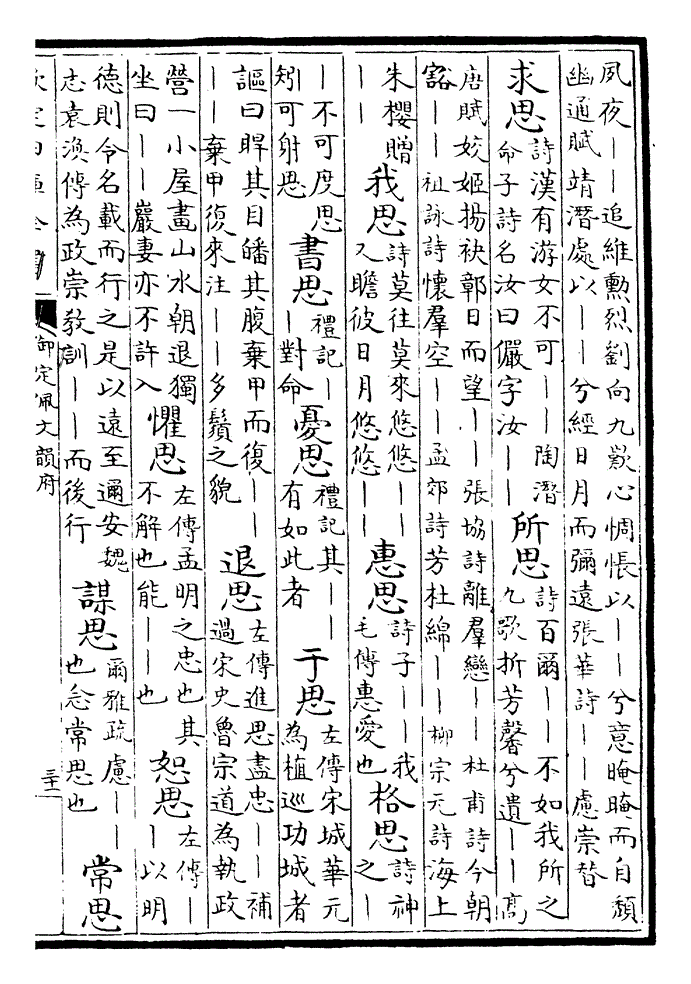 夙夜丨丨追維勲烈劉向九歎心惆悵以丨丨兮意晻晻而自頽
幽通賦靖潛處以丨丨兮經日月而彌遠張華詩丨丨慮崇替
求思 詩漢有游女不可丨丨陶潛命子詩名汝曰儼字汝丨丨 所思 詩百爾丨丨不如我所之九歌折芳馨兮遺丨丨高
唐賦姣姬揚袂鄣日而望丨丨張協詩離羣戀丨丨杜甫詩今朝
豁丨丨祖詠詩懷羣空丨丨孟郊詩芳杜綿丨丨柳宗元詩海上
朱櫻贈丨丨 我思 詩莫往莫來悠悠丨丨又瞻彼日月悠悠丨丨 惠思 詩子丨丨我毛傳惠愛也 格思 詩神之丨丨
丨不可度思矧可射思 書思 禮記丨丨對命 憂思 禮記其丨丨有如此者 于思 左傳宋城華元為植巡功城者
謳曰睅其目皤其腹棄甲而復丨丨丨丨棄甲復來注丨丨多鬚之貌 退思 左傳進思盡忠丨丨補過宋史魯宗道為執政
營一小屋畫山水朝退獨坐曰丨丨巖妻亦不許入 懼思 左傳孟明之忠也其不解也能丨丨也 恕思 左傳丨丨以明
德則令名載而行之是以遠至邇安魏志袁渙傳為政崇教訓丨丨而後行 謀思 爾雅疏慮丨丨也念常思也 常思
御定佩文韻府